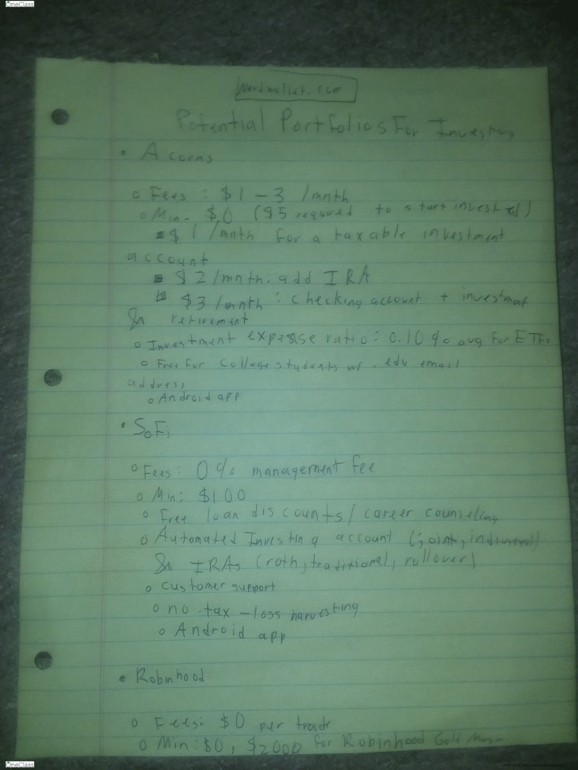 OneClass
Nerdwallet.com
Potential Portfolios For Investing
• Acorns
o Fees : $1 - 3 /mnth
o Min. $0 ($5 required to start invested)
▪ $1 /mnth for a taxable investment
account
▪ $2/mnth: add IRA
▪ $3/mnth : checking account + investment
& retirement
o Investment expense ratio: 0.10 % avg for ETFs
o Free for College students w/ .edu email
address
o Android app
• SoFi
o Fees: 0% management fee
o Min: $100
o Free loan discounts / career counseling
o Automated Investing account (joint, individual)
& IRAs (roth, traditional, rollover)
o customer support
o no tax-loss harvesting
o Android app
• Robinhood
o Fees: $0 per trade
o Min: $0, $2000 for Robinhood Gold
OneClass